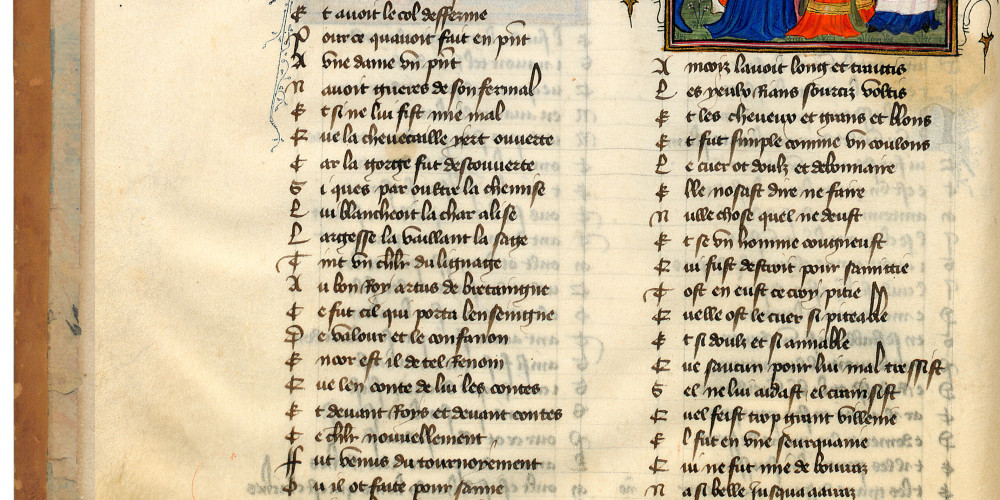 E t auoit le col desferme
P our ce quauoit fait en pnt
A vne dame vn pnt
N auoit gueres de son fermal
E t si ne lui fist mie mal
Q ue la cheuecaille yert ouuerte
C ar la gorge fut descouuerte
S i ques par oultre la chemise
L ui blancheoit la char alise
L argesse la vaillant la sage
T int vn chlr du lignage
A u bon Roy artus de bretaingne
C e fut cil qui porta lenseingne
D e valour et le confanon
E ncor est il de tel Renom
Q ue len conte de lui les contes
E t deuant Roys et deuant contes
C e chlr nouuellement
F ut venus du tournoyement
O u il ot faite pour samie
A incoiz lauoit long et traitis
L es yeulx Rians sourciz voltis
E t les cheueux et grans et blons
E t fut simple comme vn coulons
L e cuer ot doulz et debonnaire
E lle nosast dire ne faire
N ulle chose quel ne deust
E t se vn homme congneust
Q ui fust destroit pour samitie
T ost en eust ce croy pitie
Q uelle ost le cuer si piteable
E t si doulz et si amiable
Q ue saucun pour lui mal tressist
S el ne lui aidast el crainsist
Q uel feist trop grant villenie
E l fut en vne seurquanie
Q ui ne fut mie de bourraz
N a si belle Jusqua arraz